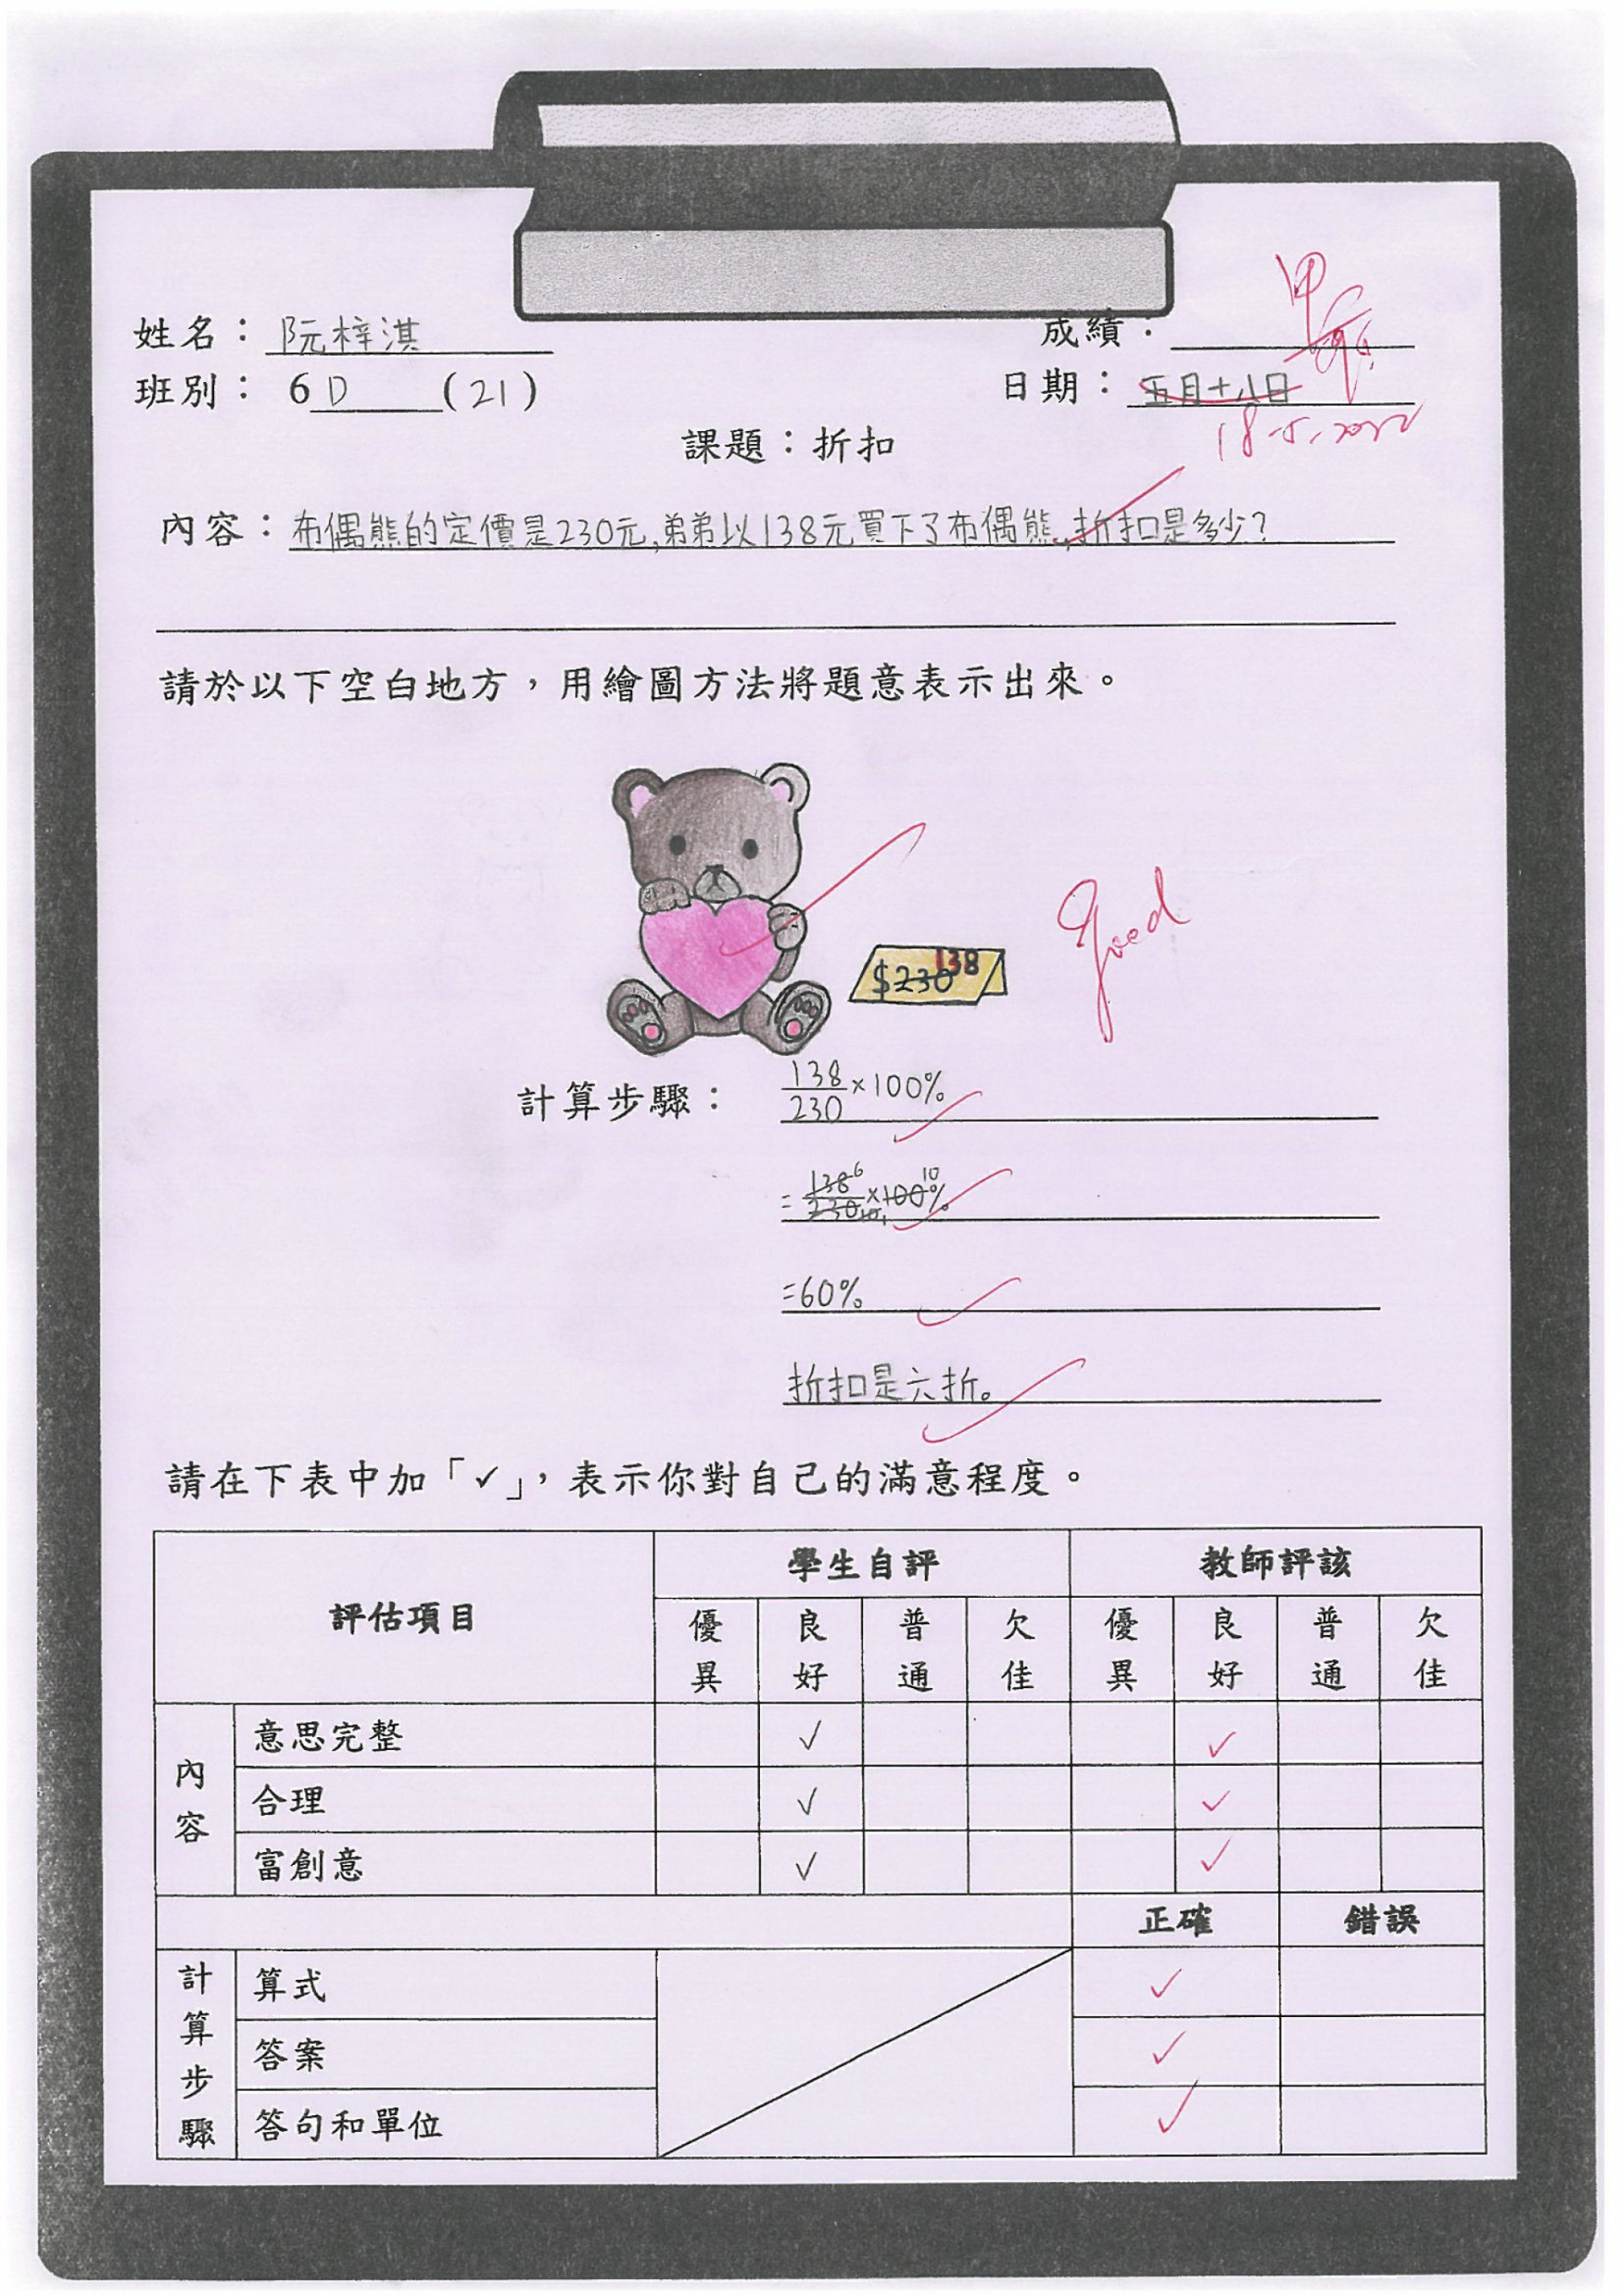 姓名：阮梓淇
成績：甲
班別：6D (21)
日期：五月十八日
18-5-2022
課題：折扣
內容：布偶熊的定價是230元,弟弟以138元買下了布偶熊,折扣是多少？
請於以下空白地方，用繪圖方法將題意表示出來。
$230 138
good
計算步驟：138/230×100%
=138 6/230 10 1×100 10%
=60%
折扣是六折。
請在下表中加「✓」，表示你對自己的滿意程度。
評估項目 學生自評 教師評該
優異 良好 普通 欠佳 優異 良好 普通 欠佳
內容
意思完整 ✓ ✓
合理 ✓ ✓
富創意 ✓ ✓
正確 錯誤
計算步驟
算式 ✓
答案 ✓
答句和單位 ✓